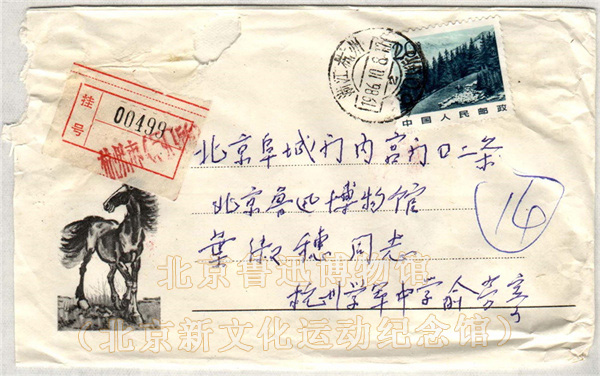 挂号
00499
杭州
浙江 杭州
20分
中国人民邮政
北京阜城门内宫门口二条
北京鲁迅博物馆
叶淑穗同志
14
杭州学军中学俞芳寄
北京鲁迅博物馆
(北京新文化运动纪念馆)